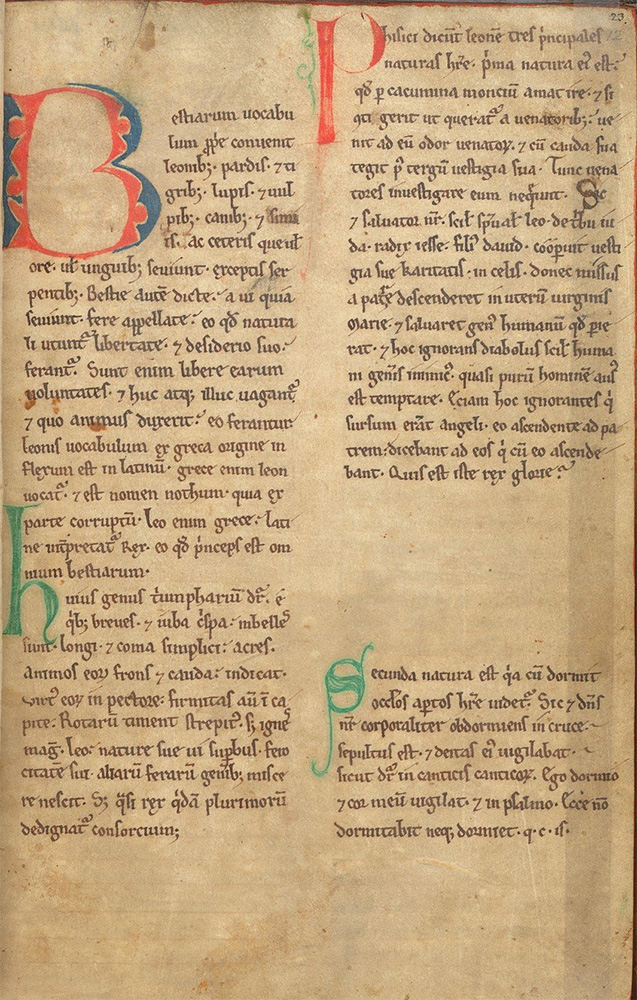 23
Bestiarum uocabu
lum ꝓp̄e conuenit
leonibꝫ· pardis· ⁊ ti
gribꝫ· lupis· ⁊ uul
pibꝫ· canibꝫ· ⁊ simi
is· ac ceteris que uł
ore· uł unguibꝫ seuiunt· exceptis ser
pentibꝫ· Bestie autē dicte· a ui quia
seuiunt· fere appellate· eo qđ natura
li utunt᷑ libertate· ⁊ desiderio suo·
ferant᷑· Sunt enim libere earum
uoluntates· ⁊ huc atqꝫ illuc uagant᷑·
⁊ quo animus duxerit· eo ferantur·
leonis uocabulum ex greca origine in
flexum est in latinū· grece enim leon
uocat᷑· ⁊ est nomen nothum· quia ex
parte corruptū· leo enim grece· lati
ne int̄pretat᷑ Rex· eo qđ p̓nceps est om
nium bestiarum·
huius genus t̓umphariū dr̄· ē
q̓bꝫ breues· ⁊ iuba c̓spa· inbelles
sunt· longi· ⁊ coma simplici· acres·
animos eoꝝ frons ⁊ cauda· indicat·
Virt᷒ eoꝝ in pectore· firmitas aū ī ca
pite· Rotarū timent strepit᷒· sꝫ ignē
mag̓· leo· nature sue ui supbus· fero
citatē sui· aliarū ferarū genibꝫ misce
re nescit· Sꝫ q̈si rex q̇dā plurimorū
dedignat᷑ consorcium;
Phisici dicūt leonē tres p̓ncipales
naturas h̄re· p̓ma natura ei᷒ est·
qđ ꝑ cacumina monciū amat ire· ⁊ si
q̓ti gerit ut querat᷑ a uenatoribꝫ· ue
nit ad eū odor uenatoꝝ· ⁊ cū cauda sua
tegit p᷒ tergū uestigia sua· Tunc uena
tores inuestigare eum neq̄unt· Sic
⁊ saluator nr̄· scił sp̄ualˀ leo· de tͥbu iu
da· radix iesse· fili᷒ dauid· coop̄uit uesti
gia sue karitatis· in celis· donec missus
a patͤ descenderet in uterū uirginis
Marie· ⁊ saluaret gen᷒ humanū qđ pie
rat· ⁊ hoc ignorans diabolus scił huma
ni gen̄is inimic᷒· quasi purū hominē aus᷒
est temptare· Eciam hoc ignorantes q̓
sursum erāt angeli· eo ascendente ad pa
trem· dicebant ad eos q̓ cū eo ascende
bant· Quis est iste rex glorie?
Secunda natura est q̓a cū dormit
occl̓os aꝑtos h̄re uidet᷑· Sic ⁊ dn̄s
nr̄ corporaliter obdormiens in cruce·
sepultus est· ⁊ deitas ei᷒ uigilabat·
sicut dr̄ in canticis canticoꝝ· Ego dormio
⁊ cor meū uigilat· ⁊ in psalmo· Ecce nō
dormitabit neqꝫ dormiet· q· c· is·